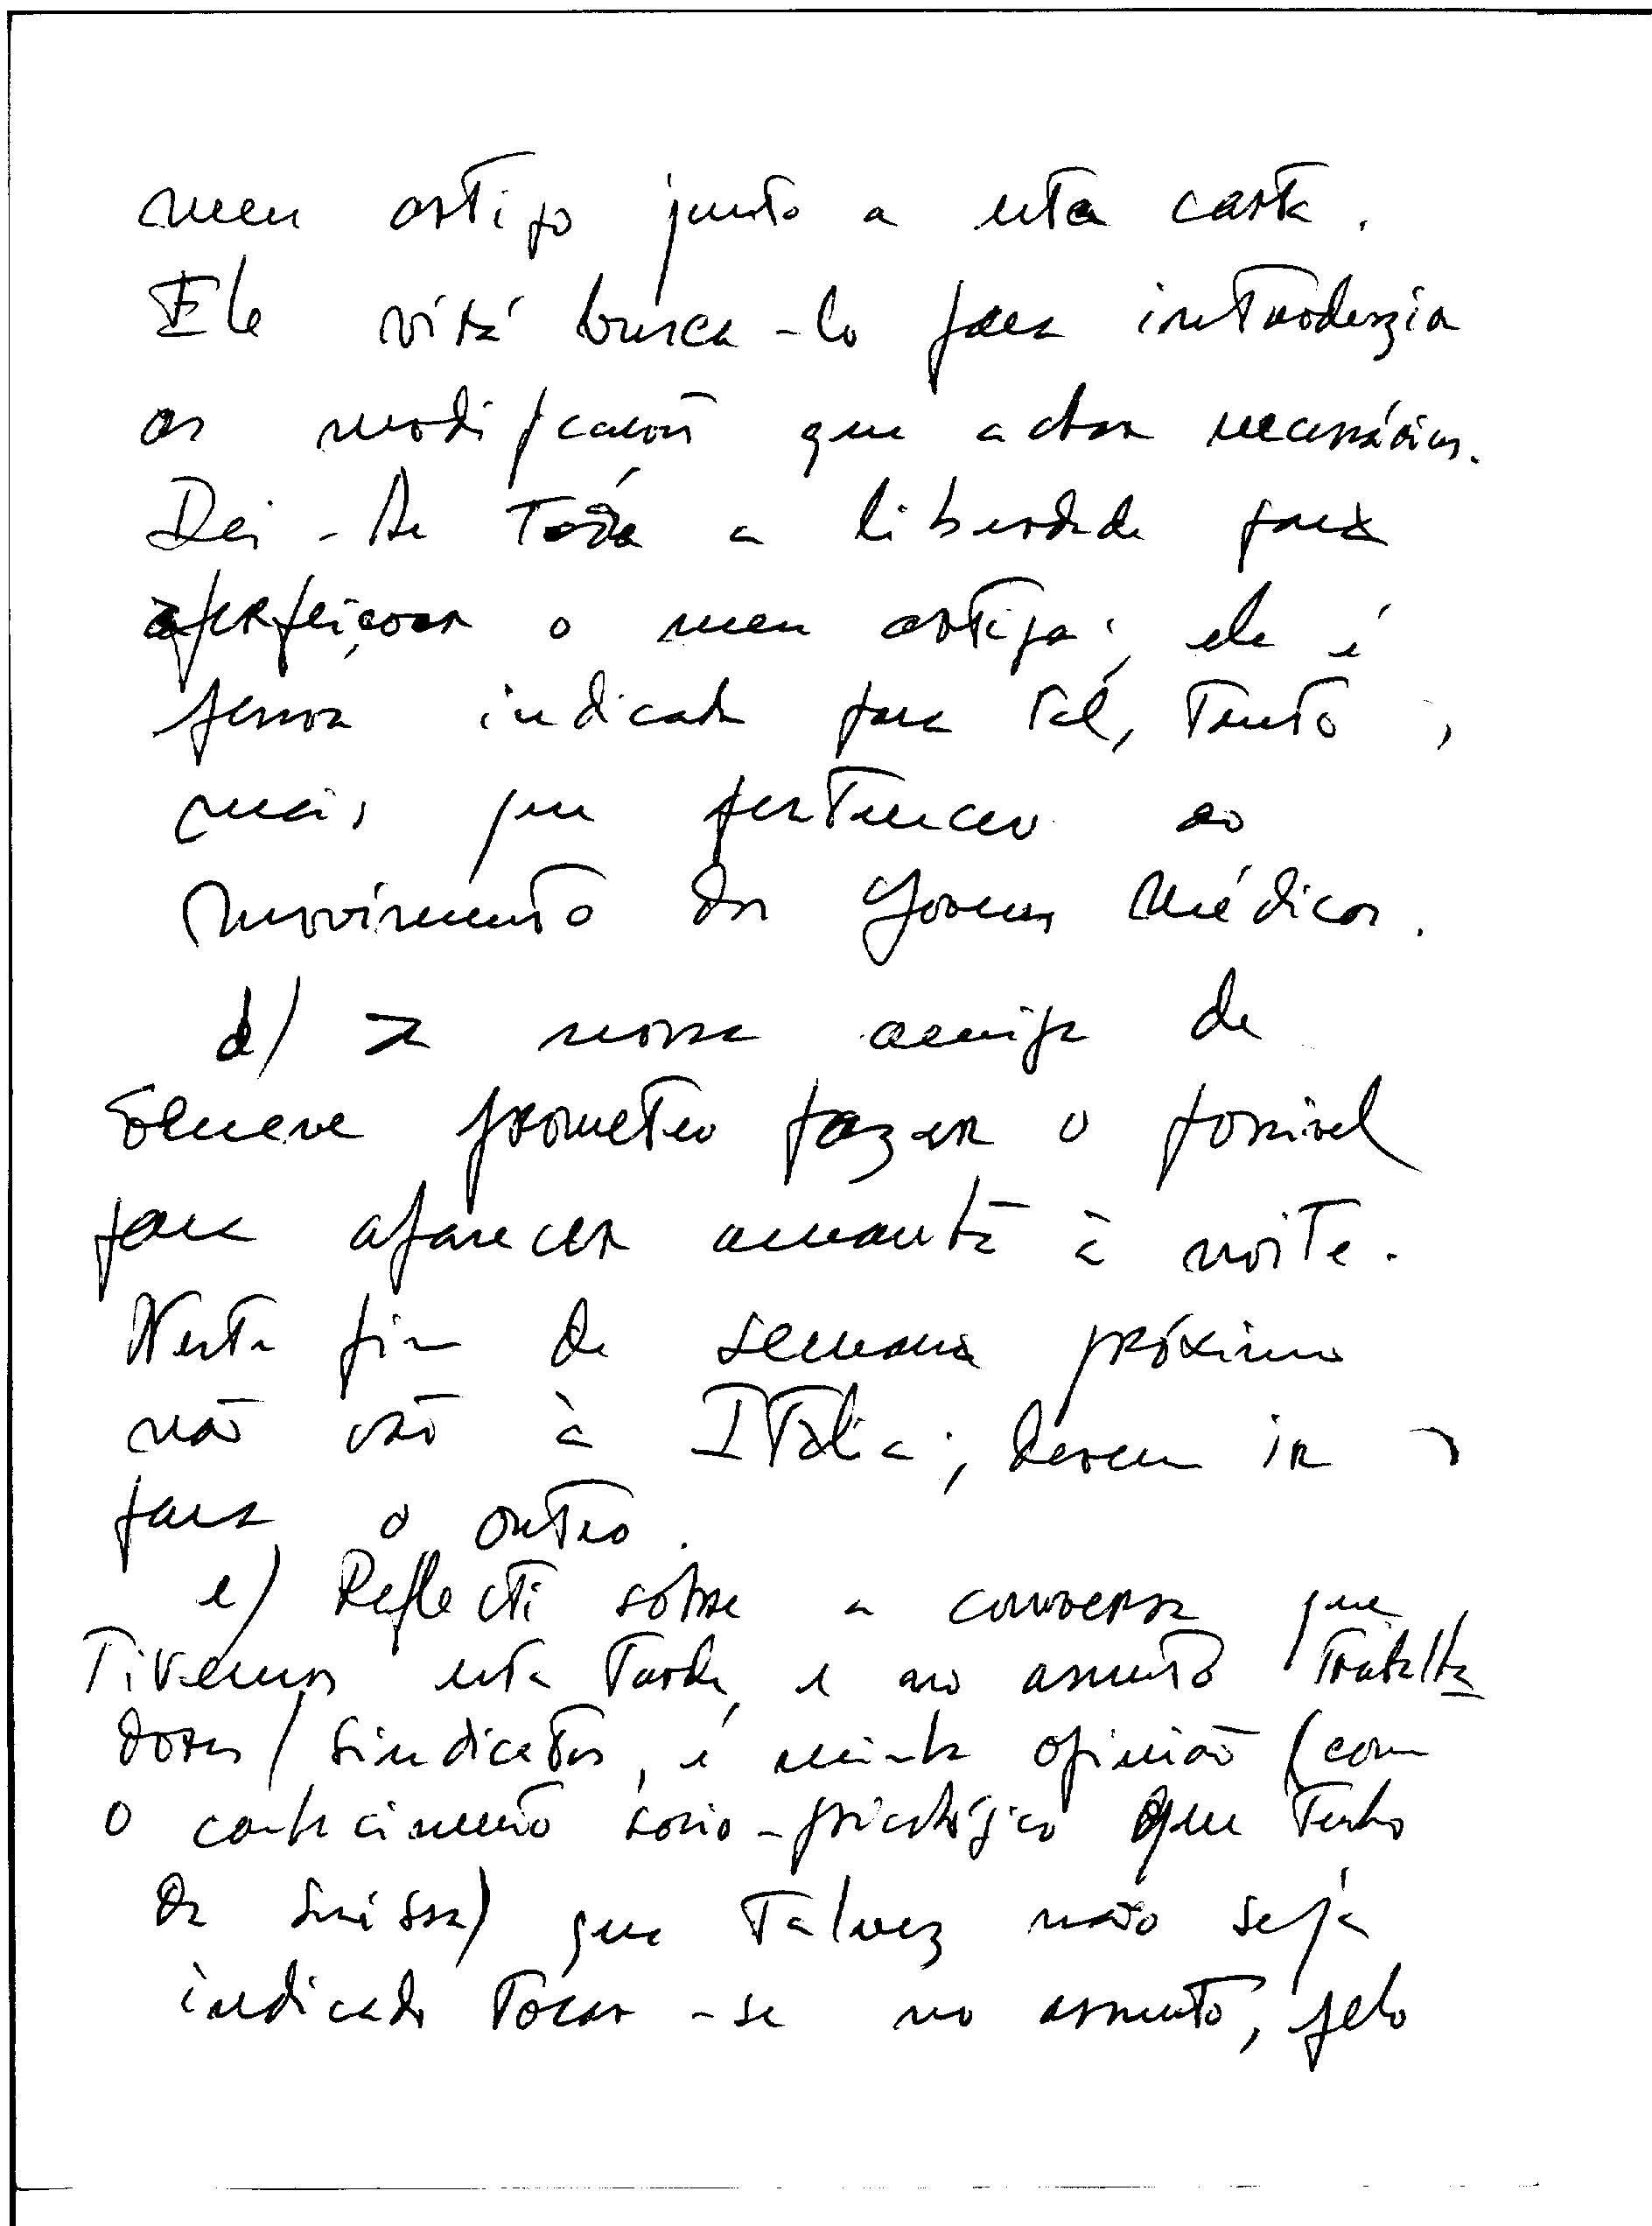 meu artigo junto a esta carta.
Ele virá busca-lo para introduzir
as modificações que achar necessárias.
Dei-lhe toda a liberdade para
aperfeiçoar o meu artigo; ele é
pessoa indicada para tal, tanto
mais que pertenceu ao
Movimento dos Jovens Médicos.
d) a nossa amiga de
Genève prometeu fazer o possível
para aparecer amanhã à noite.
Neste fim de semana próximo
não vão à Itália; devem ir
para o outro.
e) Reflecti sobre a conversa que
tivemos esta tarde, e no assunto trabalha
dores/sindicatos, é minha opinião (com
o conhecimento socio-psicológico que tenho
da Suissa) que talvez não seja
indicado tocar-se no assunto, pelo